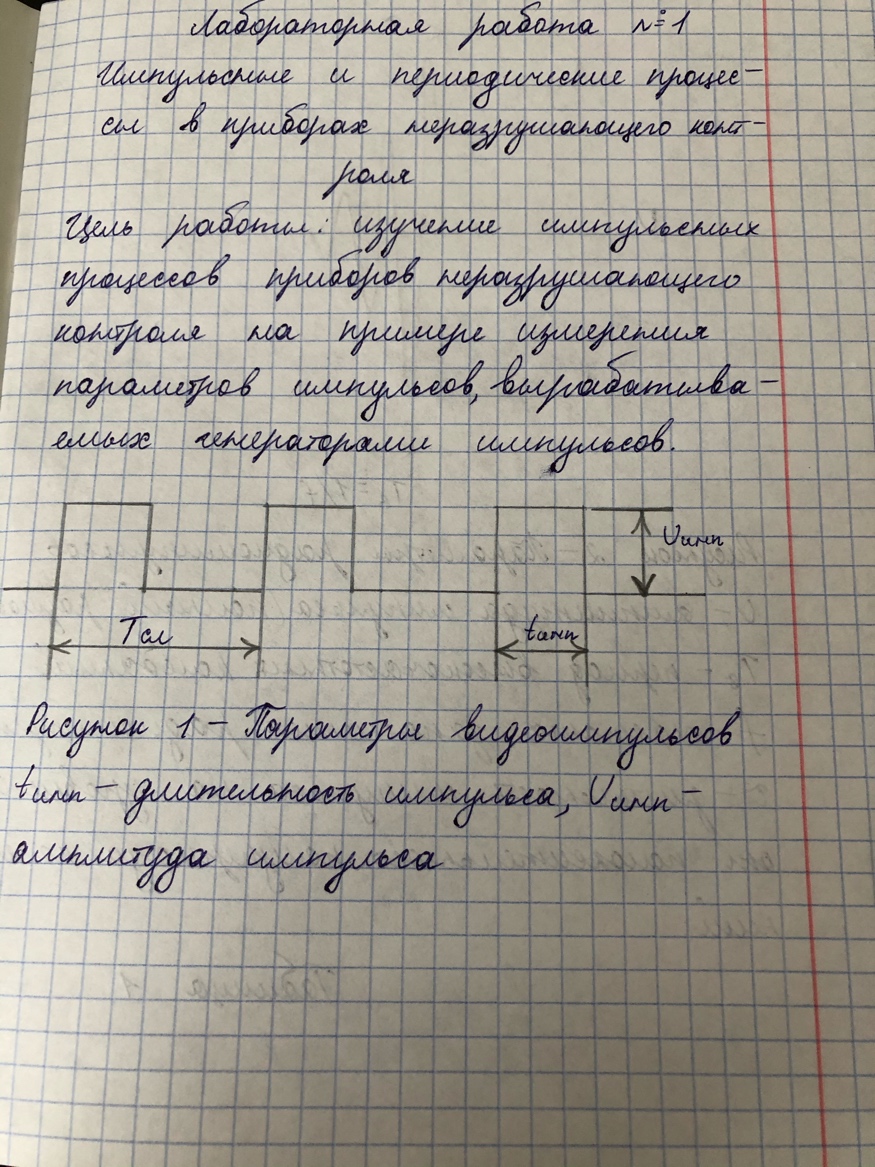 Лабораторная работа №1
Импульсные и периодические процес-
сы в приборах неразрушающего конт-
роля
Цель работы: изучение импульсных
процессов приборов неразрушающего
контроля на примере измерения
параметров импульсов, вырабатыва-
емых генераторами импульсов.
Uимп
Tсл tимп
Рисунок 1 - Параметры видеоимпульсов
tимп - длительность импульса, Uимп -
амплитуда импульса